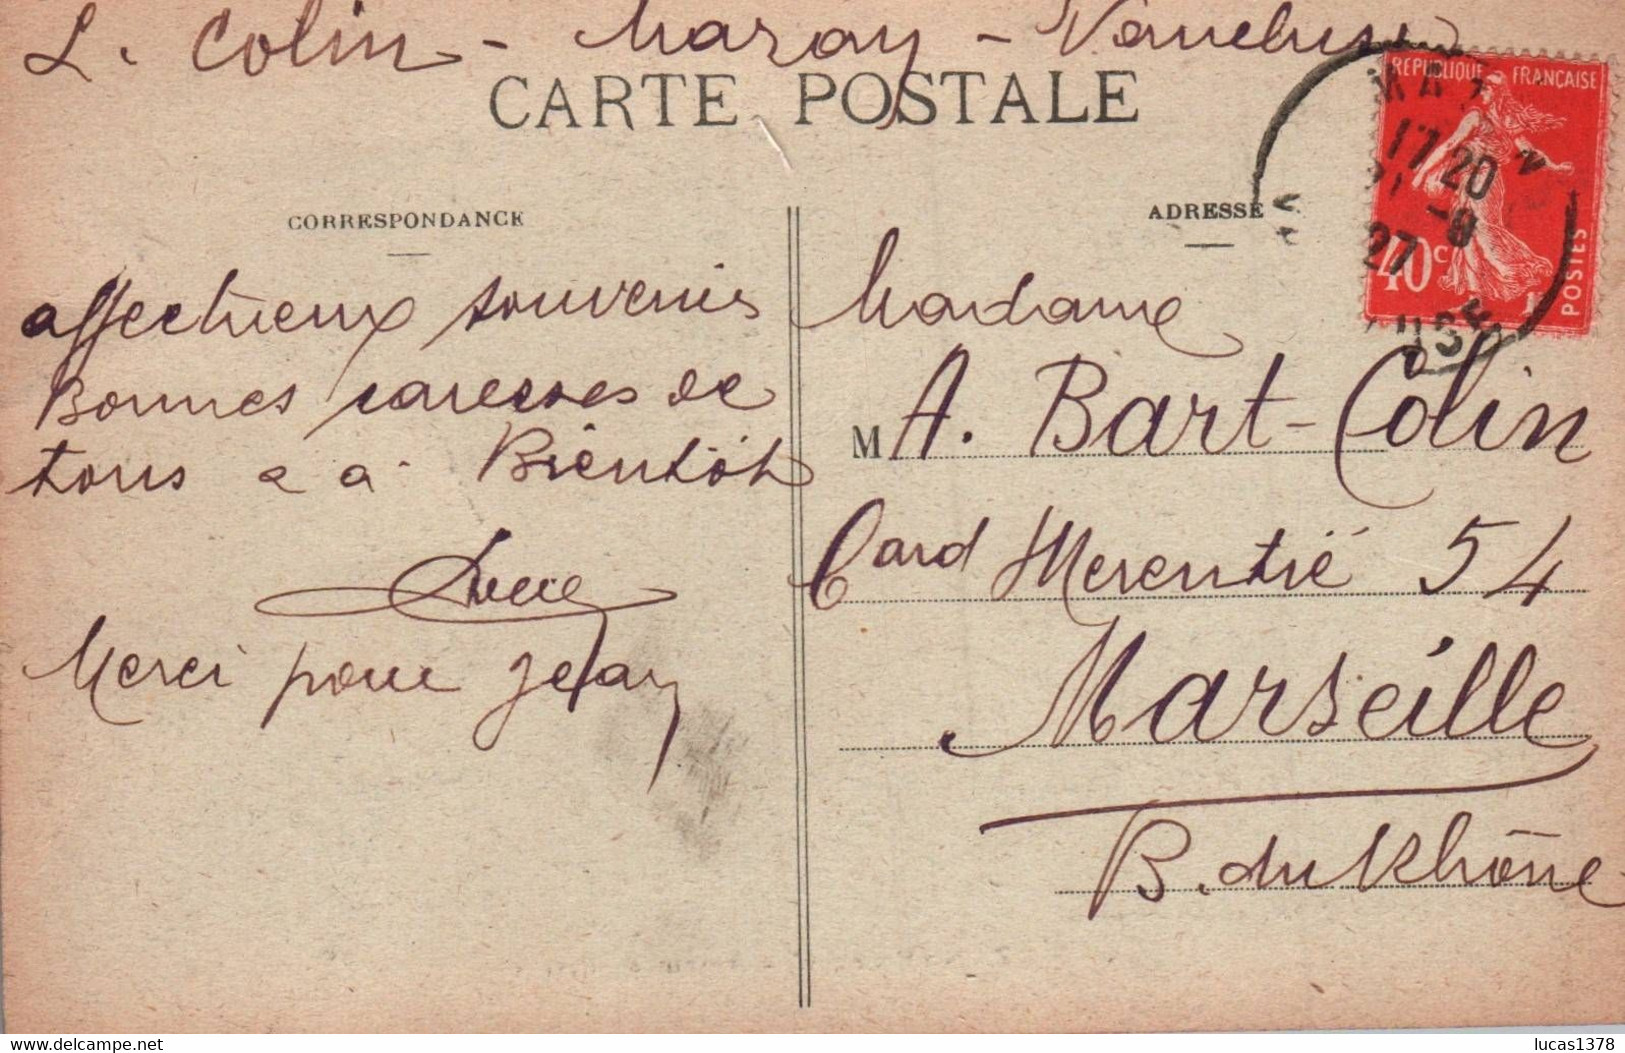 L. Colin - Mazan - Vaucluse
CARTE POSTALE
CORRESPONDANCE
ADRESSE
REPUBLIQUE FRANÇAISE
17 20
-8
27
40c
POSTES
USE
affectueux souvenirs
Bonnes caresses de
tous e a Bientôt
Merci pour
Madame
M A. Bart-Colin
Bard Merentié 54
Marseille
B. du Rhône
delcampe.net
lucas1378